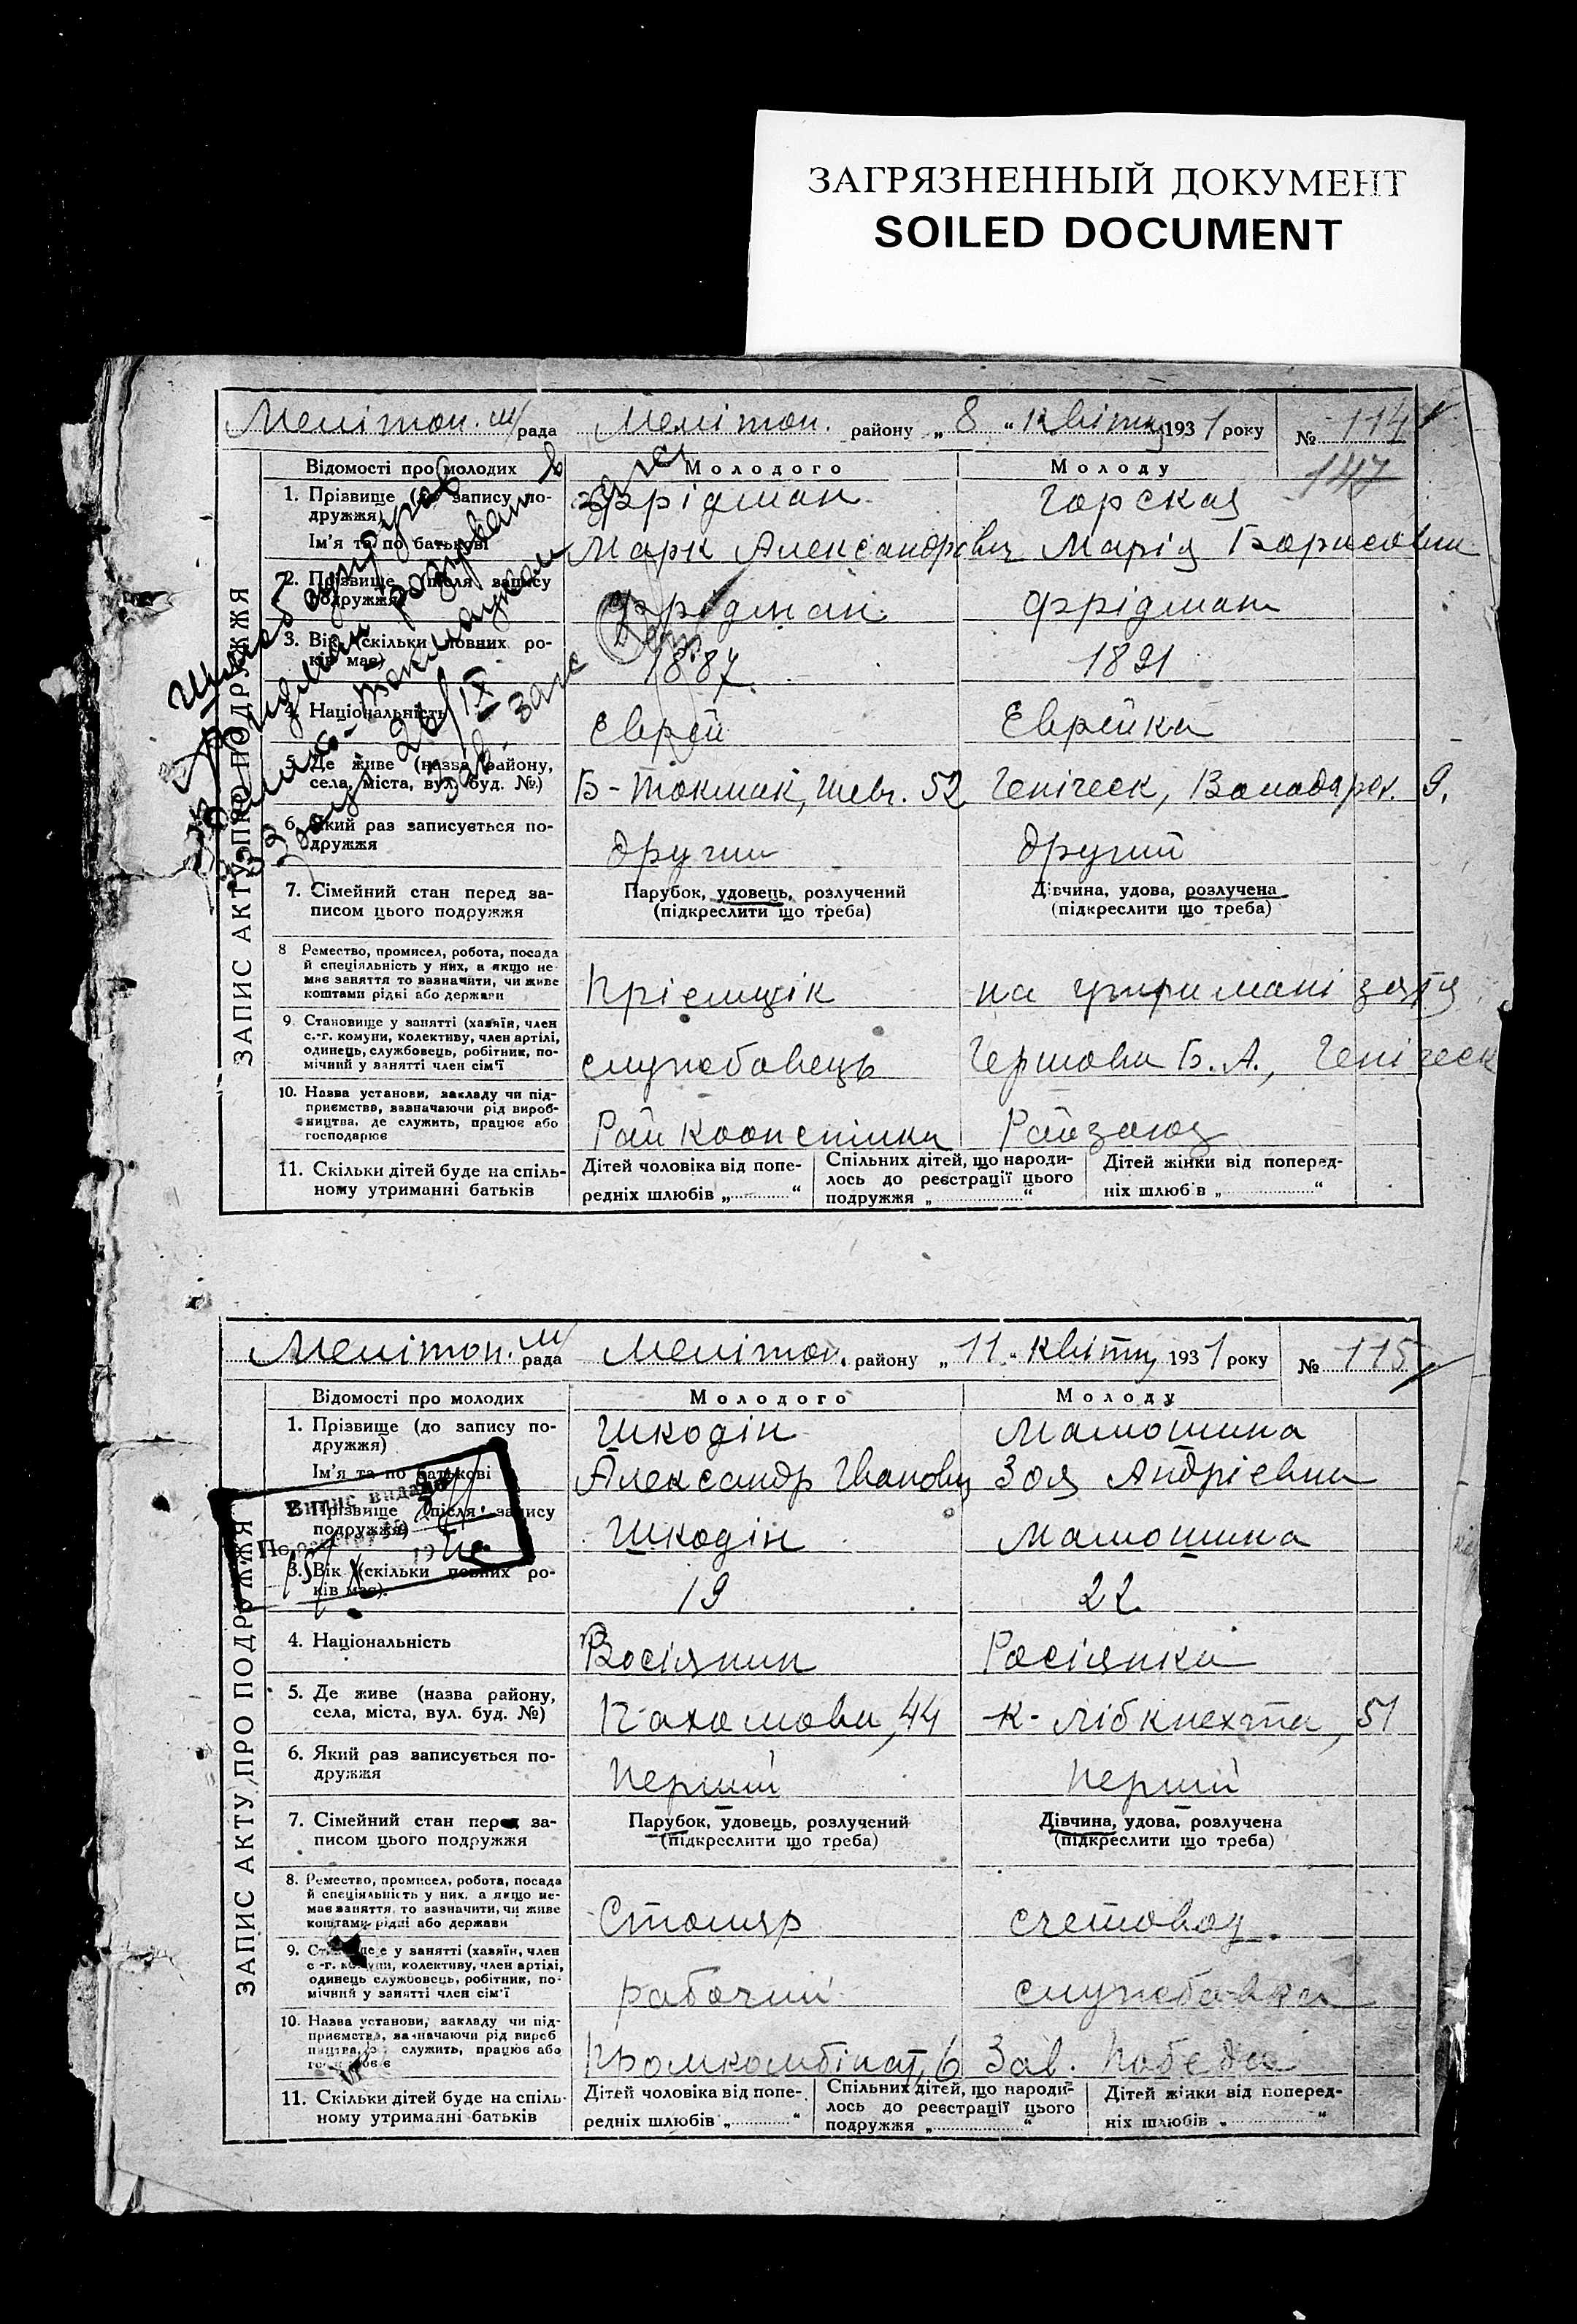 ЗАГРЯЗНЕННЫЙ ДОКУМЕНТ
SOILED DOCUMENT
Мелітоп. м/рада Мелітоп. району „8“ Квітня 1931 року № 114
147
ЗАПИС АКТУ ПРО ПОДРУЖЖЯ
Відомості про молодих Молодого Молоду
1. Прізвище (до запису по-
дружжя) Фрідман Горская
Ім'я та по батькові Марк Александрович Марія Борисовна
2. Прізвище (після запису
подружжя) Фрідман Фрідман
3. Вік (скільки повних ро-
ків має) 1887 1891
4. Національність Еврей Еврейка
5. Де живе (назва району,
села, міста, вул. буд. №) Б-Токмак, Шевч. 52 Генічеськ, Володарск. 9.
6. Який раз записується по-
дружжя другий другий
7. Сімейний стан перед за-
писом цього подружжя
Парубок, удовець, розлучений
(підкреслити що треба)
Дівчина, удова, розлучена
(підкреслити що треба)
8 Ремество, промисел, робота, посада
й спеціяльність у них, а якщо не
має заняття то зазначити, чи живе
коштами рідні або держави Пріемщік на утримані зятя
9. Становище у занятті (хазяїн, член
с.-г. комуни, колективу, член артілі,
одинець, службовець, робітник, по-
мічний у занятті член сім'ї службовець Б. А., Генічеськ
10. Назва установи, закладу чи під-
приємства, зазначаючи рід вироб-
ництва, де служить, працює або
господарює Райкоопспілка Райзагод
11. Скільки дітей буде на спіль-
ному утриманні батьків
Дітей чоловіка від попе-
редніх шлюбів „ “
Спільних дітей, що народи-
лось до реєстрації цього
подружжя „ “
Дітей жінки від поперед-
ніх шлюбів „ “
Мелітоп. м/рада Мелітоп. району „11“ Квітня 1931 року № 115
ЗАПИС АКТУ ПРО ПОДРУЖЖЯ
Відомості про молодих Молодого Молоду
1. Прізвище (до запису по-
дружжя) Шкодін Мамошина
Ім'я та по батькові Александр Іванович Зоя Андрієвна
2. Прізвище (після запису
подружжя) Шкодін Мамошина
3. Вік (скільки повних ро-
ків має) 19 22
4. Національність Росіянин Росіянка
5. Де живе (назва району,
села, міста, вул. буд. №) Пахомова, 44 К-Лібкнехта, 51
6. Який раз записується по-
дружжя перший перший
7. Сімейний стан перед за-
писом цього подружжя
Парубок, удовець, розлучений
(підкреслити що треба)
Дівчина, удова, розлучена
(підкреслити що треба)
8. Ремество, промисел, робота, посада
й спеціяльність у них, а якщо не-
має заняття, то зазначити, чи живе
коштами рідні або держави Столяр счетовод
9. Становище у занятті (хазяїн, член
с-г. комуни, колективу, член артілі,
одинець службовець, робітник, по-
мічний у занятті член сім'ї рабочий службовка
10. Назва установи, закладу чи під-
приємства, зазначаючи рід вироб
ництва, де служить, працює або
господарює Промкомбінат, 6 Зав. Победа
11. Скільки дітей буде на спіль-
ному утриманні батьків
Дітей чоловіка від попе-
редніх шлюбів „ “
Спільних дітей, що народи-
лось до реєстрації цього
подружжя „ “
Дітей жінки від поперед-
ніх шлюбів „ “